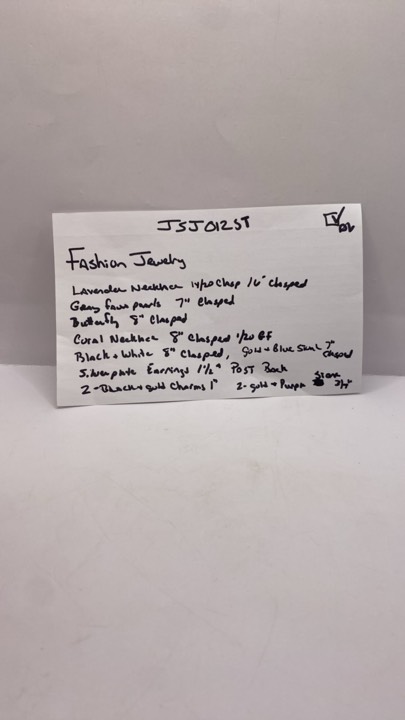 JSJ012ST
Fashion Jewelry
Lavender Necklace 14/20 Clasp 16" Clasped
Gray faux pearls 7" Clasped
Butterfly 8" Clasped
Coral Necklace 8" Clasped 1/20 GF
Black + White 8" Clasped, Gold + Blue 7" Clasped
Silverplate Earrings 1 1/2" POST Back
2 - Black + gold Charms 1" 2 - gold + Purple Stone 3/4"